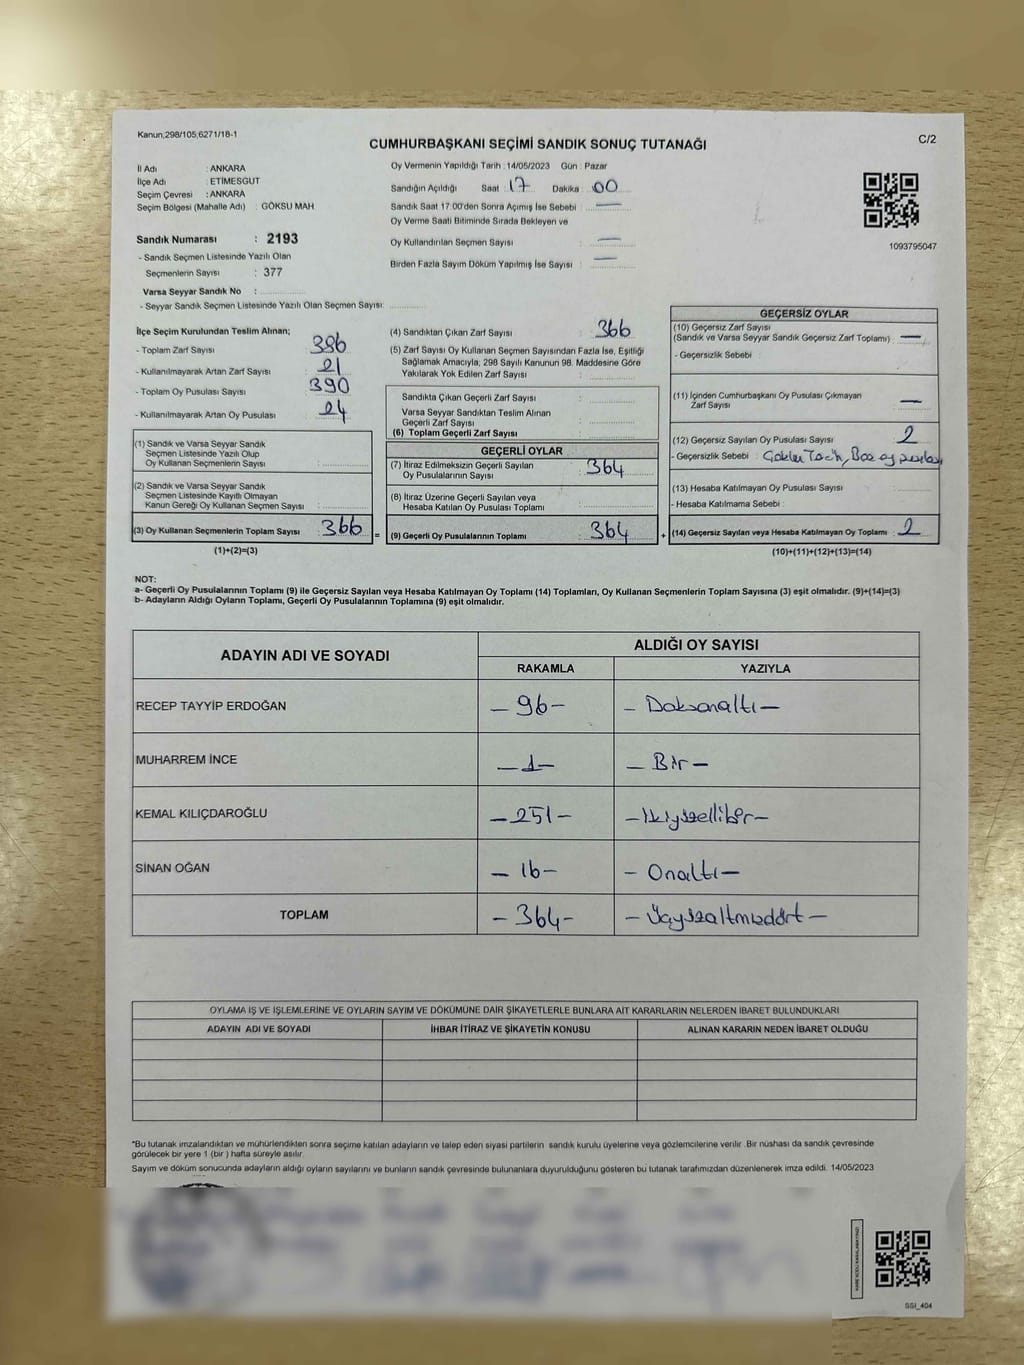 Kanun;298/105;6271/18-1
C/2
CUMHURBAŞKANI SEÇİMİ SANDIK SONUÇ TUTANAĞI
İl Adı : ANKARA
İlçe Adı : ETİMESGUT
Seçim Çevresi : ANKARA
Seçim Bölgesi (Mahalle Adı) : GÖKSU MAH
Sandık Numarası : 2193
- Sandık Seçmen Listesinde Yazılı Olan
Seçmenlerin Sayısı : 377
Varsa Seyyar Sandık No :
- Seyyar Sandık Seçmen Listesinde Yazılı Olan Seçmen Sayısı:
Oy Vermenin Yapıldığı Tarih : 14/05/2023 Gün : Pazar
Sandığın Açıldığı Saat : 17 Dakika : 00
Sandık Saat 17:00'den Sonra Açımış İse Sebebi : —
Oy Verme Saati Bitiminde Sırada Bekleyen ve
Oy Kullandırılan Seçmen Sayısı : —
Birden Fazla Sayım Döküm Yapılmış İse Sayısı : —
1093795047
İlçe Seçim Kurulundan Teslim Alınan;
- Toplam Zarf Sayısı : 386
- Kullanılmayarak Artan Zarf Sayısı : 21
- Toplam Oy Pusulası Sayısı : 390
- Kullanılmayarak Artan Oy Pusulası : 24
(1) Sandık ve Varsa Seyyar Sandık
Seçmen Listesinde Yazılı Olup
Oy Kullanan Seçmenlerin Sayısı :
(2) Sandık ve Varsa Seyyar Sandık
Seçmen Listesinde Kayıtlı Olmayan
Kanun Gereği Oy Kullanan Seçmen Sayısı :
(3) Oy Kullanan Seçmenlerin Toplam Sayısı : 366
(1)+(2)=(3)
=
(4) Sandıktan Çıkan Zarf Sayısı : 366
(5) Zarf Sayısı Oy Kullanan Seçmen Sayısından Fazla İse, Eşitliği
Sağlamak Amacıyla, 298 Sayılı Kanunun 98. Maddesine Göre
Yakılarak Yok Edilen Zarf Sayısı :
Sandıkta Çıkan Geçerli Zarf Sayısı :
Varsa Seyyar Sandıktan Teslim Alınan
Geçerli Zarf Sayısı :
(6) Toplam Geçerli Zarf Sayısı :
GEÇERLİ OYLAR
(7) İtiraz Edilmeksizin Geçerli Sayılan
Oy Pusulalarının Sayısı : 364
(8) İtiraz Üzerine Geçerli Sayılan veya
Hesaba Katılan Oy Pusulası Toplamı :
(9) Geçerli Oy Pusulalarının Toplamı : 364
+
GEÇERSİZ OYLAR
(10) Geçersiz Zarf Sayısı
(Sandık ve Varsa Seyyar Sandık Geçersiz Zarf Toplamı) : —
- Geçersizlik Sebebi :
(11) İçinden Cumhurbaşkanı Oy Pusulası Çıkmayan
Zarf Sayısı : —
(12) Geçersiz Sayılan Oy Pusulası Sayısı : 2
- Geçersizlik Sebebi : Boş oy pusulası
(13) Hesaba Katılmayan Oy Pusulası Sayısı :
- Hesaba Katılmama Sebebi :
(14) Geçersiz Sayılan veya Hesaba Katılmayan Oy Toplamı : 2
(10)+(11)+(12)+(13)=(14)
NOT:
a- Geçerli Oy Pusulalarının Toplamı (9) ile Geçersiz Sayılan veya Hesaba Katılmayan Oy Toplamı (14) Toplamları, Oy Kullanan Seçmenlerin Toplam Sayısına (3) eşit olmalıdır. (9)+(14)=(3)
b- Adayların Aldığı Oyların Toplamı, Geçerli Oy Pusulalarının Toplamına (9) eşit olmalıdır.
ADAYIN ADI VE SOYADI
ALDIĞI OY SAYISI
RAKAMLA YAZIYLA
RECEP TAYYİP ERDOĞAN – 96 – – Doksanaltı –
MUHARREM İNCE – 1 – – Bir –
KEMAL KILIÇDAROĞLU – 251 – – İkiyüzellibir –
SİNAN OĞAN – 16 – – Onaltı –
TOPLAM – 364 – – Üçyüzaltmışdört –
OYLAMA İŞ VE İŞLEMLERİNE VE OYLARIN SAYIM VE DÖKÜMÜNE DAİR ŞİKAYETLERLE BUNLARA AİT KARARLARIN NELERDEN İBARET BULUNDUKLARI
ADAYIN ADI VE SOYADI İHBAR İTİRAZ VE ŞİKAYETİN KONUSU ALINAN KARARIN NEDEN İBARET OLDUĞU
*Bu tutanak imzalandıktan ve mühürlendikten sonra seçime katılan adayların ve talep eden siyasi partilerin sandık kurulu üyelerine veya gözlemcilerine verilir .Bir nüshası da sandık çevresinde
görülecek bir yere 1 (bir ) hafta süreyle asılır.
Sayım ve döküm sonucunda adayların aldığı oyların sayılarını ve bunların sandık çevresinde bulunanlara duyurulduğunu gösteren bu tutanak tarafımızdan düzenlenerek imza edildi. 14/05/2023
SSI_404